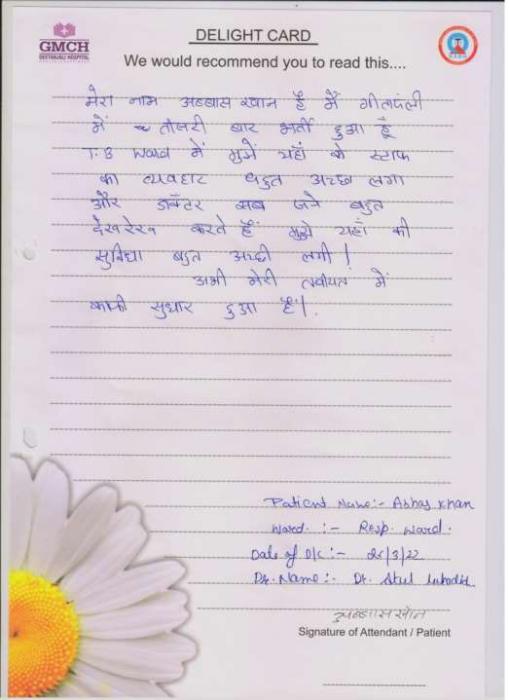 GMCH
GEETANJALI HOSPITAL
DELIGHT CARD
We would recommend you to read this....
मेरा नाम अब्बास खान है मैं गीतांजली
में तीसरी बार भर्ती हुआ हूँ
T.B Ward में मुझे यहाँ के स्टाफ
का व्यवहार बहुत अच्छा लगा
और डॉक्टर सब जने बहुत
देखरेख करते हैं मुझे यहाँ की
सुविधा बहुत अच्छी लगी।
अभी मेरी तबीयत में
काफी सुधार हुआ है।.
Patient Name:- Abbas Khan
Ward. :- Resp. Ward.
Date of D/C :- 25/3/22
Dr. Name:- Dr. Atul
अब्बास खान
Signature of Attendant / Patient